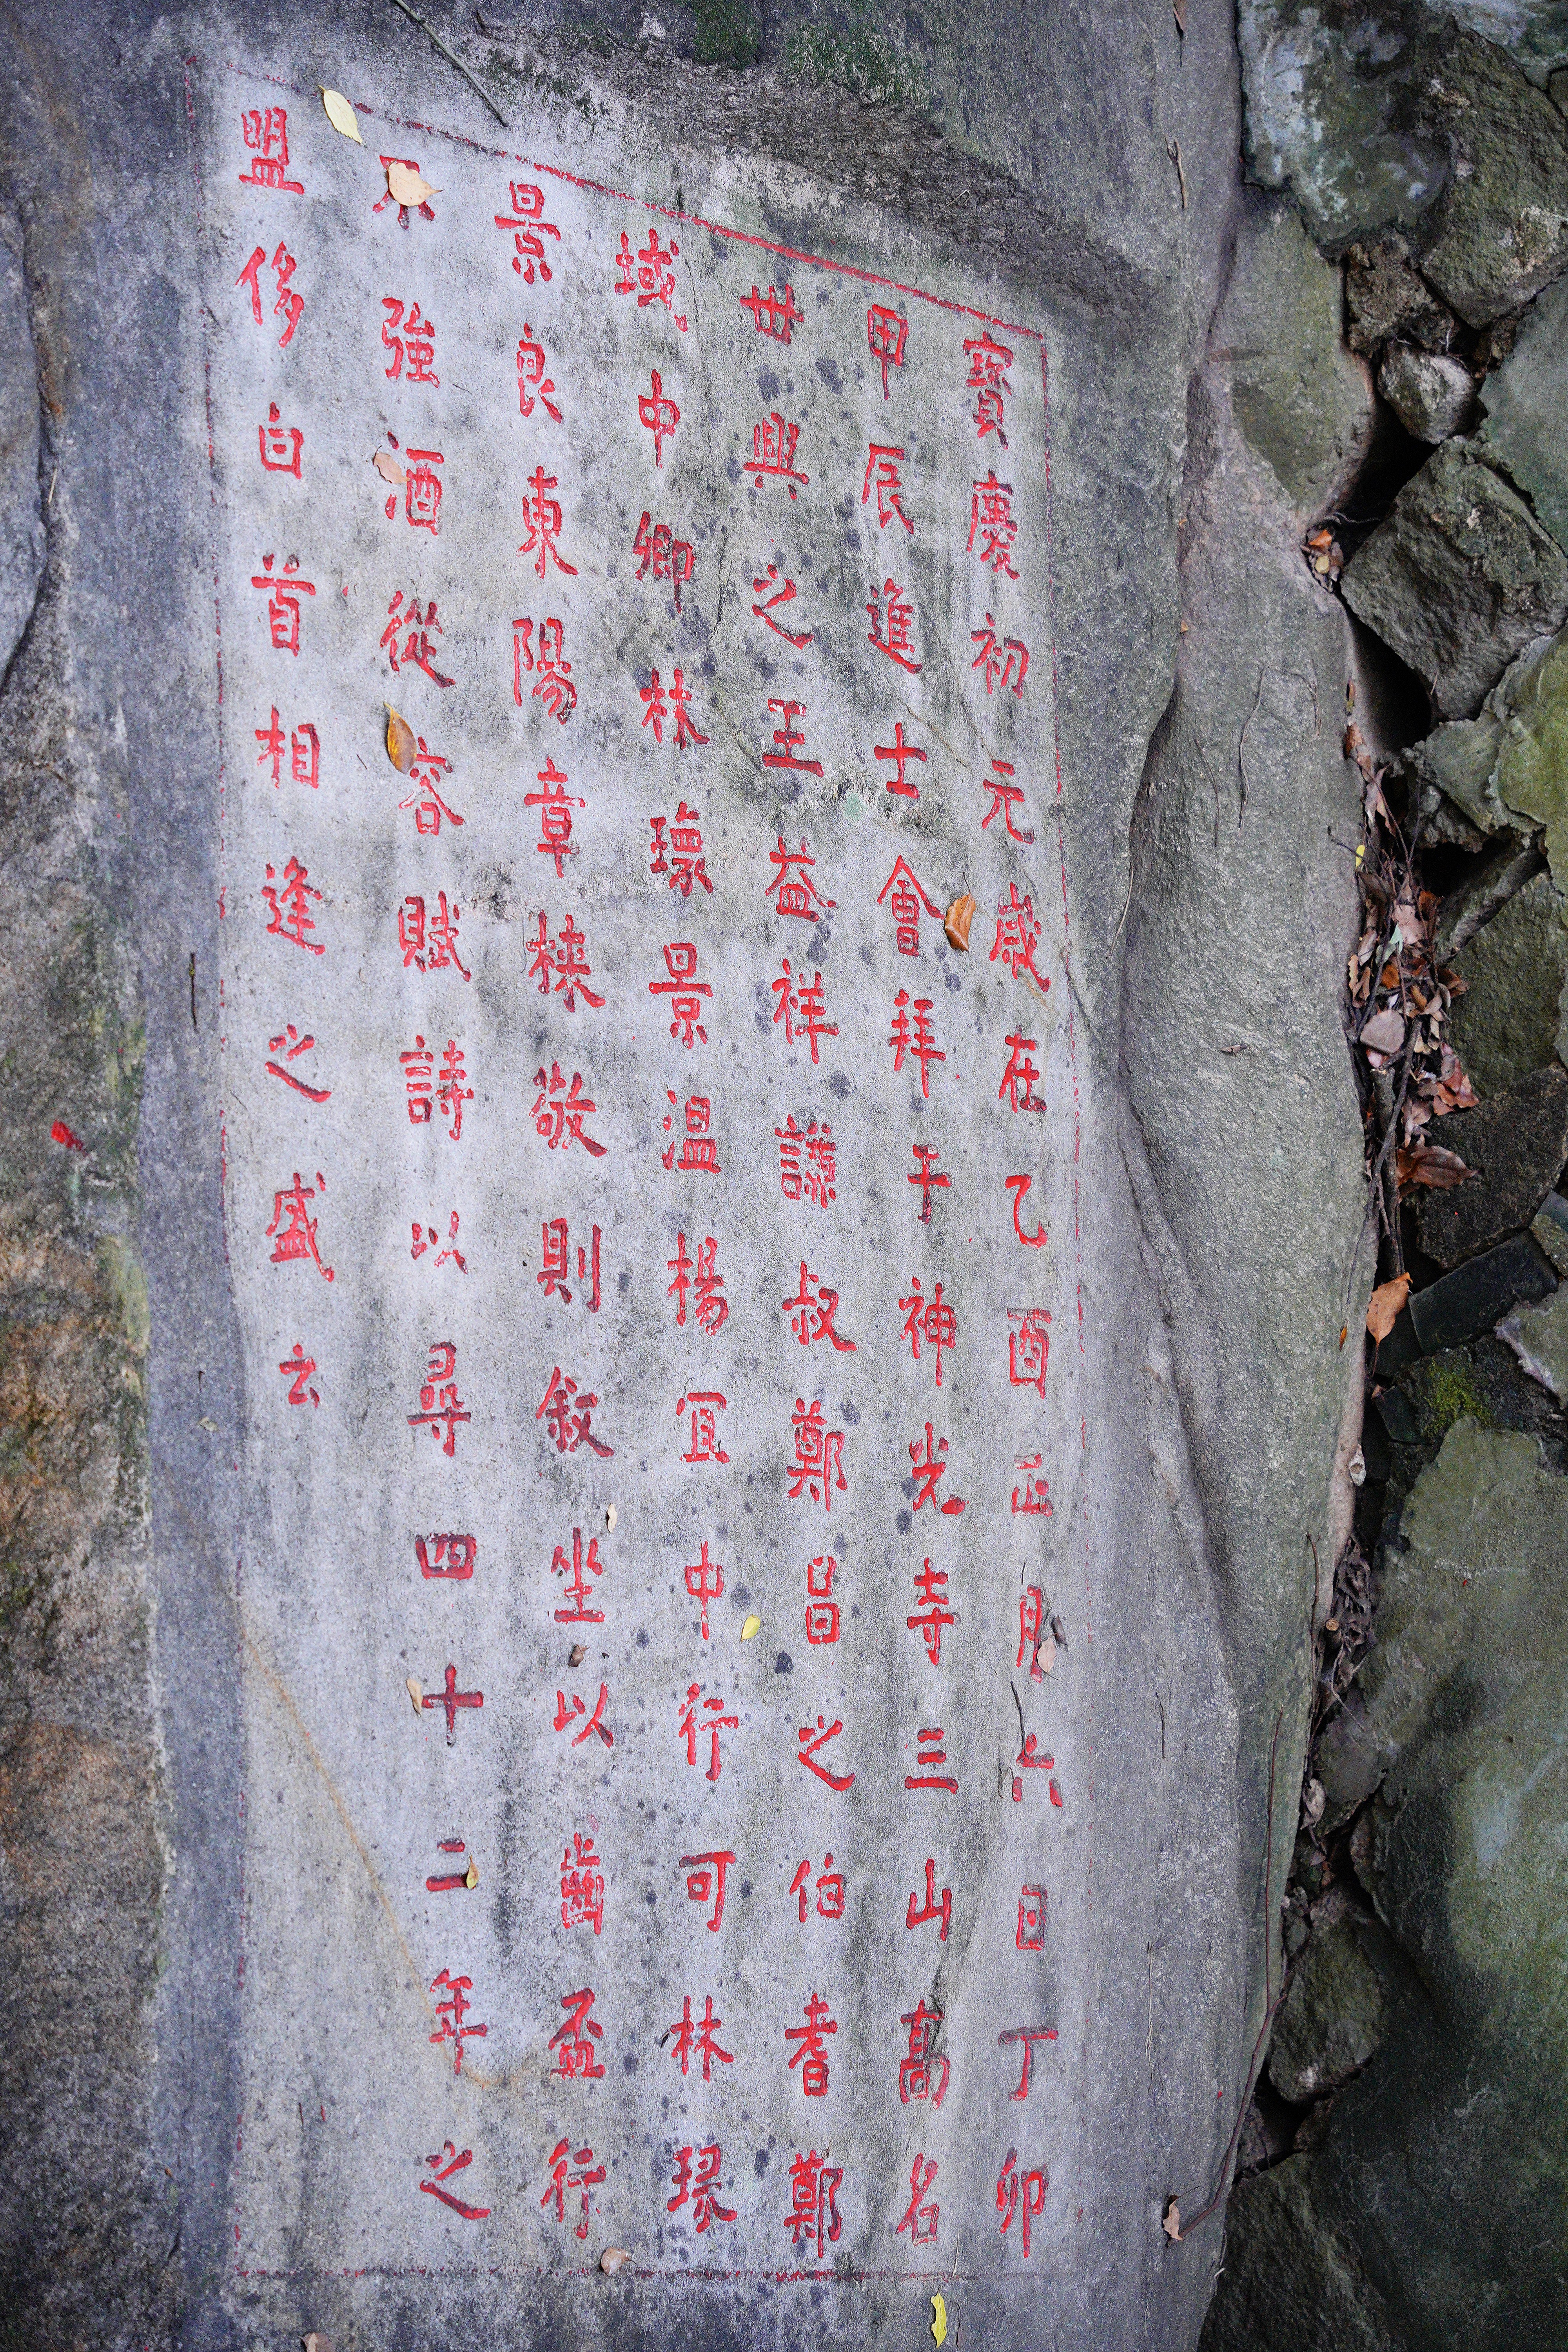 寶慶初元歲在乙酉正月六日丁卯
甲辰進士會拜于神光寺三山高名
世興之王益祥謙叔鄭昌之伯耆鄭
域中卿林環景温楊宜中行可林琭
景良東陽章棶敬則敘坐以齒盃行
不強酒從容賦詩以尋四十二年之
盟侈白首相逢之盛云